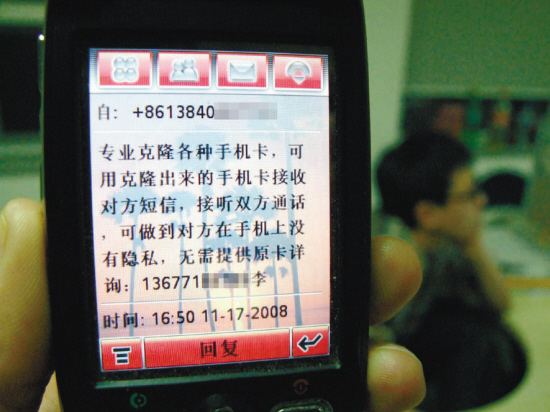 自: +8613840
专业克隆各种手机卡，可
用克隆出来的手机卡接收
对方短信，接听双方通话
，可做到对方在手机上没
有隐私，无需提供原卡详
询：136771 李
时间: 16:50 11-17-2008
回复